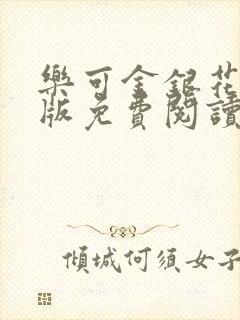 樂可金銀花
版免費閱讀
傾城何須女子